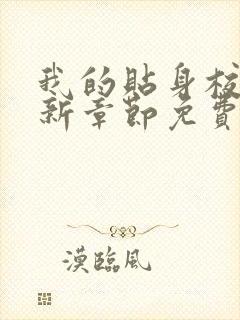 我的貼身校
新章節免費
漠臨風